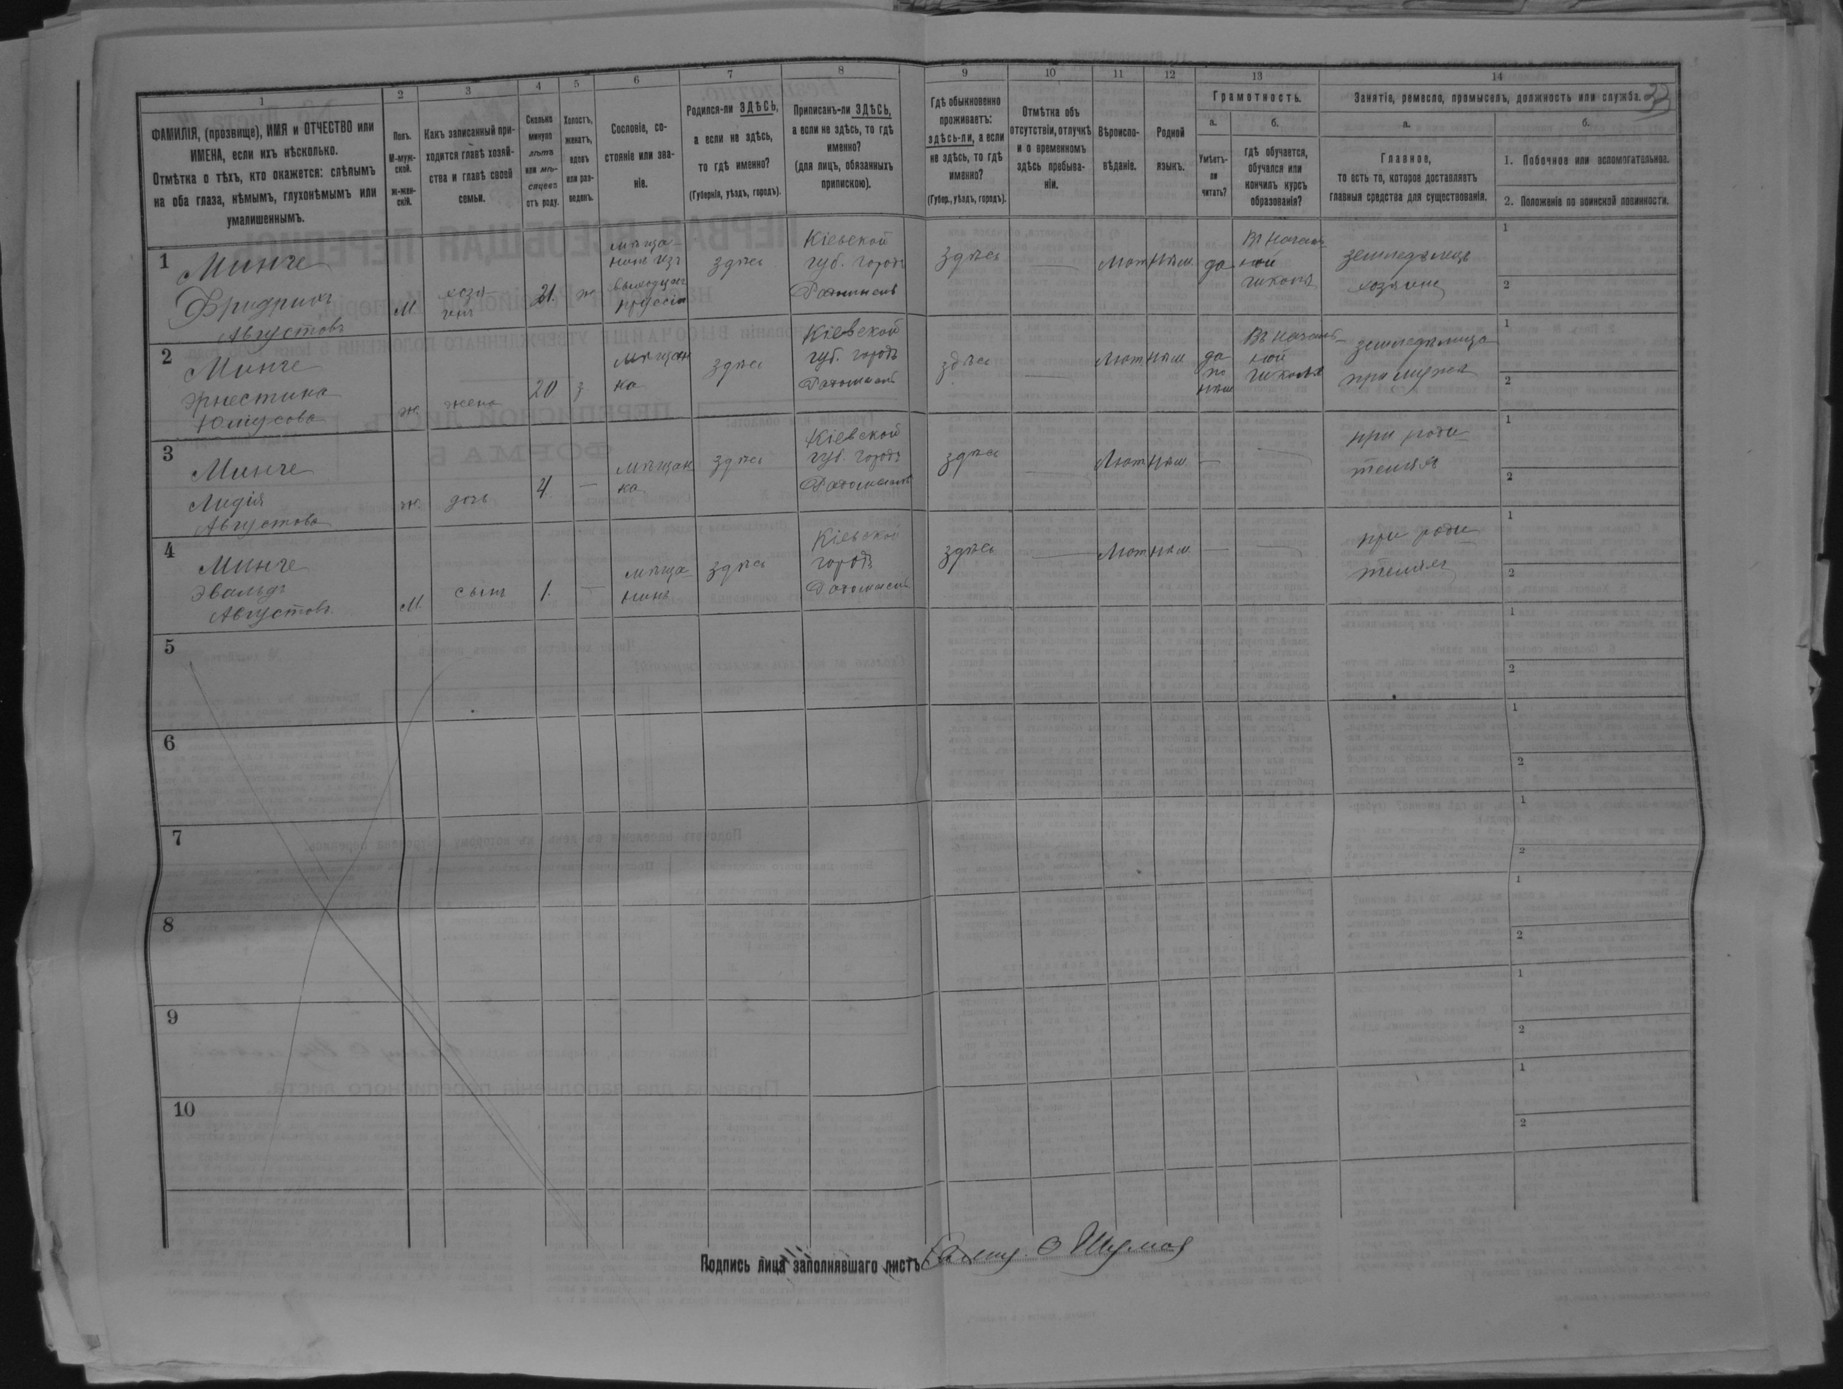 1
2
3
4
5
6
7
8
9
10
11
12
13
14
ФАМИЛІЯ, (прозвище), ИМЯ и ОТЧЕСТВО или
ИМЕНА, если ихъ нѣсколько.
Отмѣтка о тѣхъ, кто окажется: слѣпымъ
на оба глаза, нѣмымъ, глухонѣмымъ или
умалишеннымъ.
Полъ.
М-муж-
ской.
ж-жен-
скій.
Какъ записанный при-
ходится главѣ хозяй-
ства и главѣ своей
семьи.
Сколько
минуло
лѣтъ
или мѣ-
сяцевъ
отъ роду.
Холостъ,
женатъ,
вдовъ
или раз-
веденъ.
Сословіе, со-
стояніе или зва-
ніе.
Родился-ли ЗДѢСЬ,
а если не здѣсь,
то гдѣ именно?
(Губернія, уѣздъ, городъ).
Приписанъ-ли ЗДѢСЬ,
а если не здѣсь, то гдѣ
именно?
(для лицъ, обязанныхъ
припискою).
Гдѣ обыкновенно
проживаетъ:
здѣсь-ли, а если
не здѣсь, то гдѣ
именно?
(Губер., уѣздъ, городъ).
Отмѣтка объ
отсутствіи, отлучкѣ
и о временномъ
здѣсь пребыва-
ніи.
Вѣроиспо-
вѣданіе.
Родной
языкъ.
Грамотность.
а.
Умѣетъ-
ли
читать?
б.
гдѣ обучается,
обучался или
кончилъ курсъ
образованія?
Занятіе, ремесло, промыселъ, должность или служба.
33
а.
Главное,
то есть то, которое доставляетъ
главныя средства для существованія.
б.
1. Побочное или вспомогательное.
2. Положеніе по воинской повинности.
1
Минче
Фридрихъ
Августовъ
М
хозя
инъ
31
ж
мѣща-
нинъ изъ
здѣсь
Кіевской
губ. городъ
Радомысль
здѣсь
—
Лют
Нѣм
да
Въ началь
ной
школѣ
земледѣлецъ
хозяинъ
1
2
2
Минче
Эрнестина
Юліусова
ж
жена
20
з
мѣщан
ка
здѣсь
Кіевской
губ. городъ
Радомысль
здѣсь
—
Лют
Нѣм
да
по
нѣм
Въ началь
ной
школѣ
при мужѣ
1
2
3
Минче
Лидія
Августова
ж
дочь
4
—
мѣщан
ка
здѣсь
Кіевской
губ. городъ
Радомысль
здѣсь
—
Лют
Нѣм
—
—
при роди
теляхъ
1
2
4
Минче
Эвальдъ
Августовъ
М.
сынъ
1.
—
мѣща
нинъ
здѣсь
Кіевской
городъ
Радомысль
здѣсь
—
Лют
Нѣм
—
—
при роди
теляхъ
1
2
5
1
2
6
1
2
7
1
2
8
1
2
9
1
2
10
1
2
Подпись лица заполнявшаго листъ